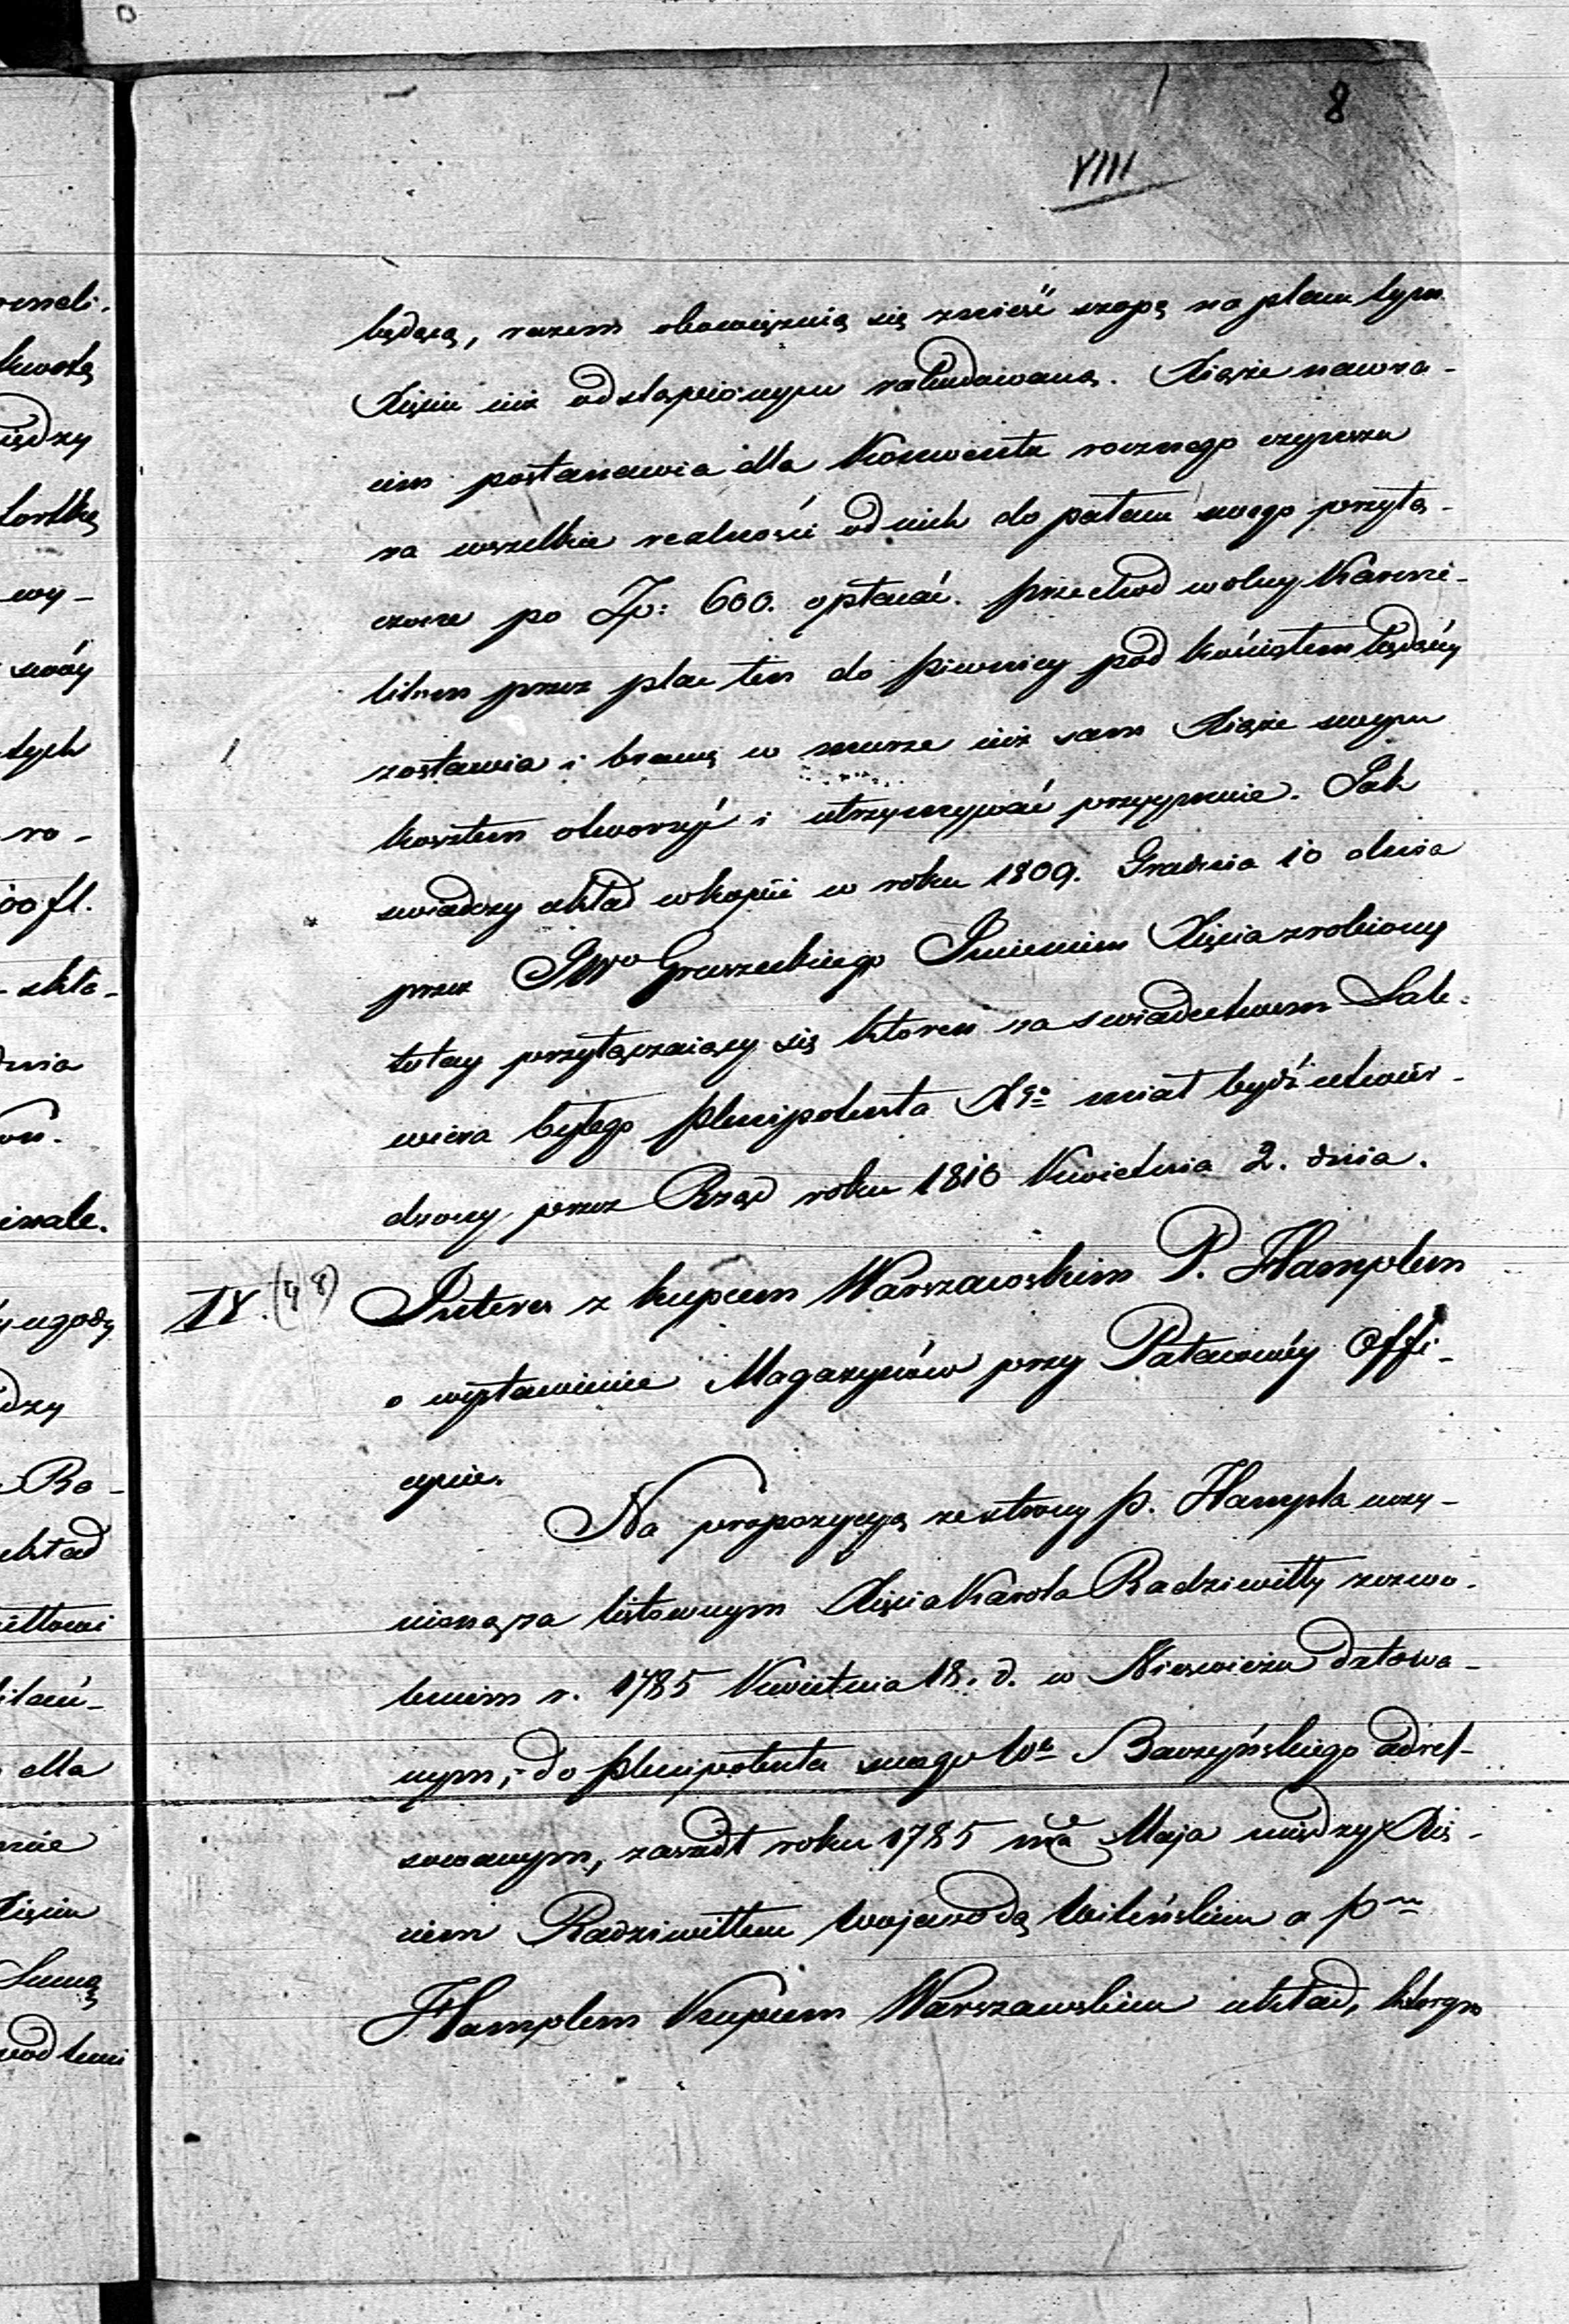 8
VIII
będącą, razem obowięzuią się znieść szopę na placu tym
Xięciu iuż odstąpionym zabudowaną. Xiąże nawza-
iem postanawia dla Konwentu rocznego czynszu
za wszelkie realności od nich do pałacu swego przyłą-
czone po Zp: 600. opłacać. przechod wolny Karme-
litom przez plac ten do piwnicy pod kościołem będącéy
zostawia i bramę w murze iuż sam Xiąże swoym
kosztem otworzyć i utrzymywać przyymuie. Jak
swiadczy układ w kopii w roku 1809. Grudnia 10 dnia
przez JWo Gruszeckiego Imieniem Xięcia zrobiony
tutay przyłączaiący się ktoren za swiadectwem Zale-
wicza byłego plenipotenta Xia miał bydź utwier-
dzony przez Rząd roku 1810 Kwietnia 2. dnia.
IX. (48) Interes z kupcem Warszawskim P. Hamplem
o wystawienie Magazynów przy Pałacowéy Offi-
cynie.
Na propozycyą ze strony p. Hampla uczy-
nioną za listownym Xięcia Karola Radziwiłły zezwo-
leniem r. 1785 Kwietnia 18. d. w Nieswieżu datowa-
nym, do plenipotenta swego Wo Baczyńskiego adres-
sowanym, zaszedł roku 1785 mca Maja między Xię-
ciem Radziwiłłem Wojewodą Wileńskim a pnem
Hamplem Kupcem Warszawskim układ, którego
rneli.
kwotą
iędzy
wy-
swóy
tych
ro-
00 fl.
- ukła-
dnia
y ugody
dzy
Ra-
układ
iłłowi
dla
Xięciu
Summą